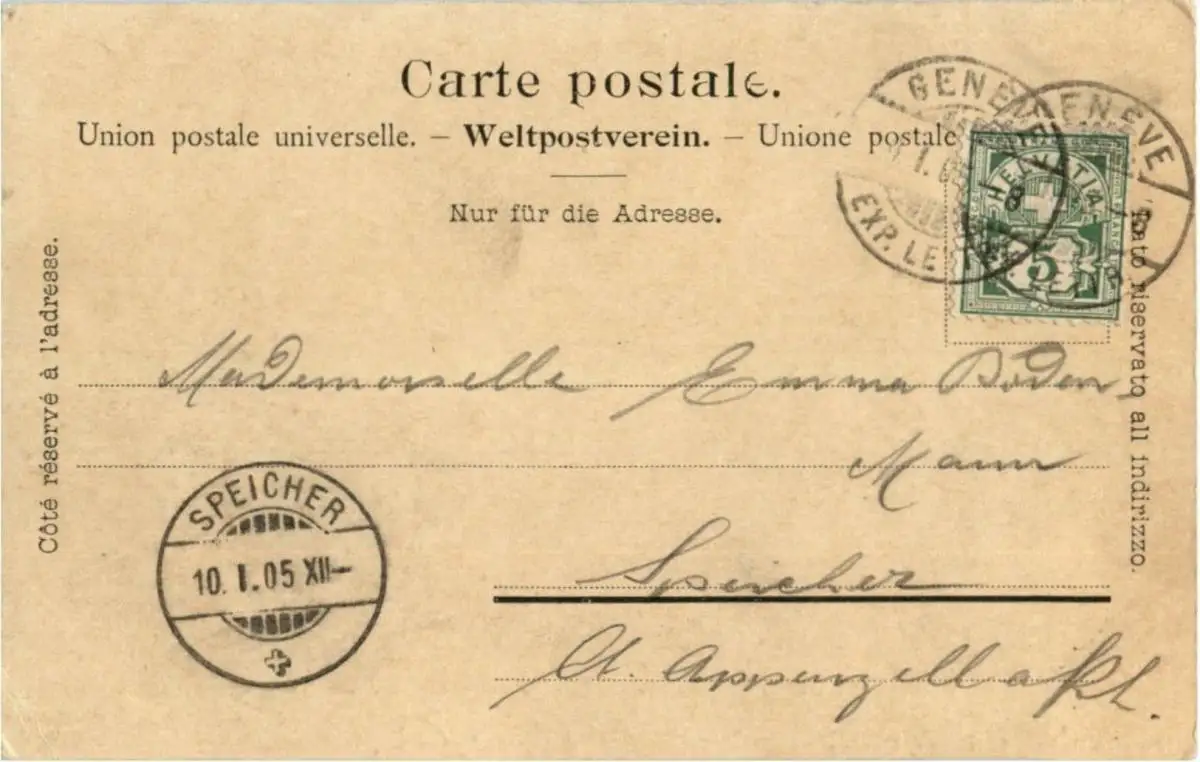 Carte postale.
Union postale universelle. – Weltpostverein. – Unione postale
Nur für die Adresse.
Côté réservé à l'adresse.
Lato riservato all indirizzo.
GENEVE
GENEVE
1.05
EXP. LETTR.
HELVETIA
5
Mademoiselle Emma Boden
Mann
Speicher
Ct. Appenzell
SPEICHER
10. I. 05 XII–